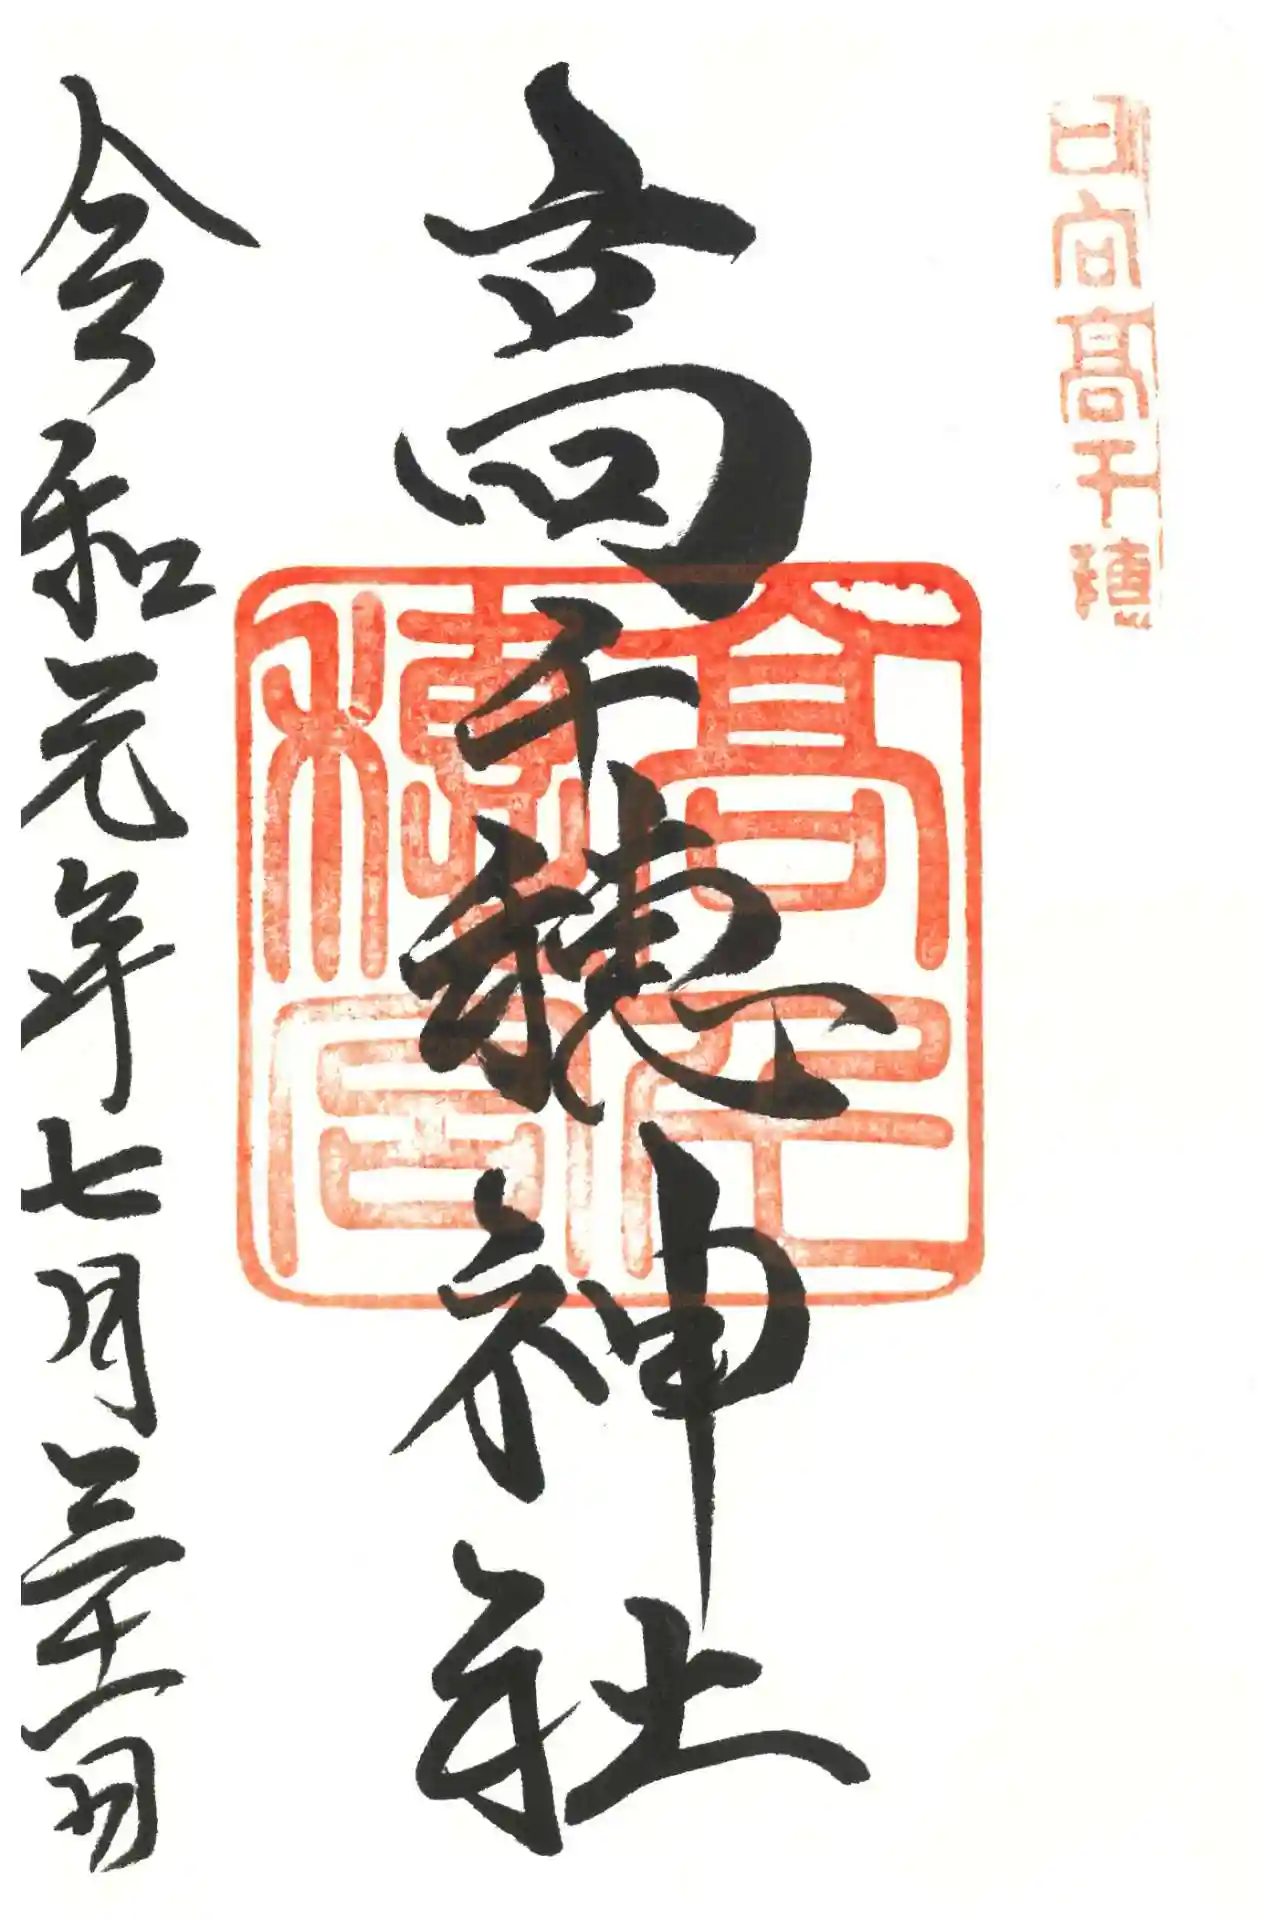 日向高千穂
高千穂神社
高千
穂宮
令和元年七月三十一日